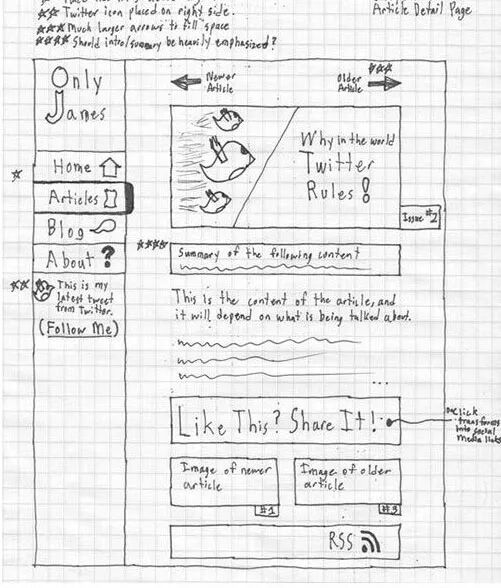 Article Detail Page
☆☆ Twitter icon placed on right side.
☆☆☆ Much larger arrows to fill space
☆☆☆☆ Should intro/summary be heavily emphasized?
Only
James
Newer
Article
☆☆☆
Older
Article
Why in the world
Twitter
Rules!
Issue #2
☆
Home
Articles
Blog
About ?
☆☆☆☆
Summary of the following content
☆☆
This is my
latest tweet
from Twitter.
(Follow Me)
This is the content of the article, and
it will depend on what is being talked about.
...
Like This? Share It!
Click
transforms
into social
media links
Image of newer
article
#1
Image of older
article
#3
RSS